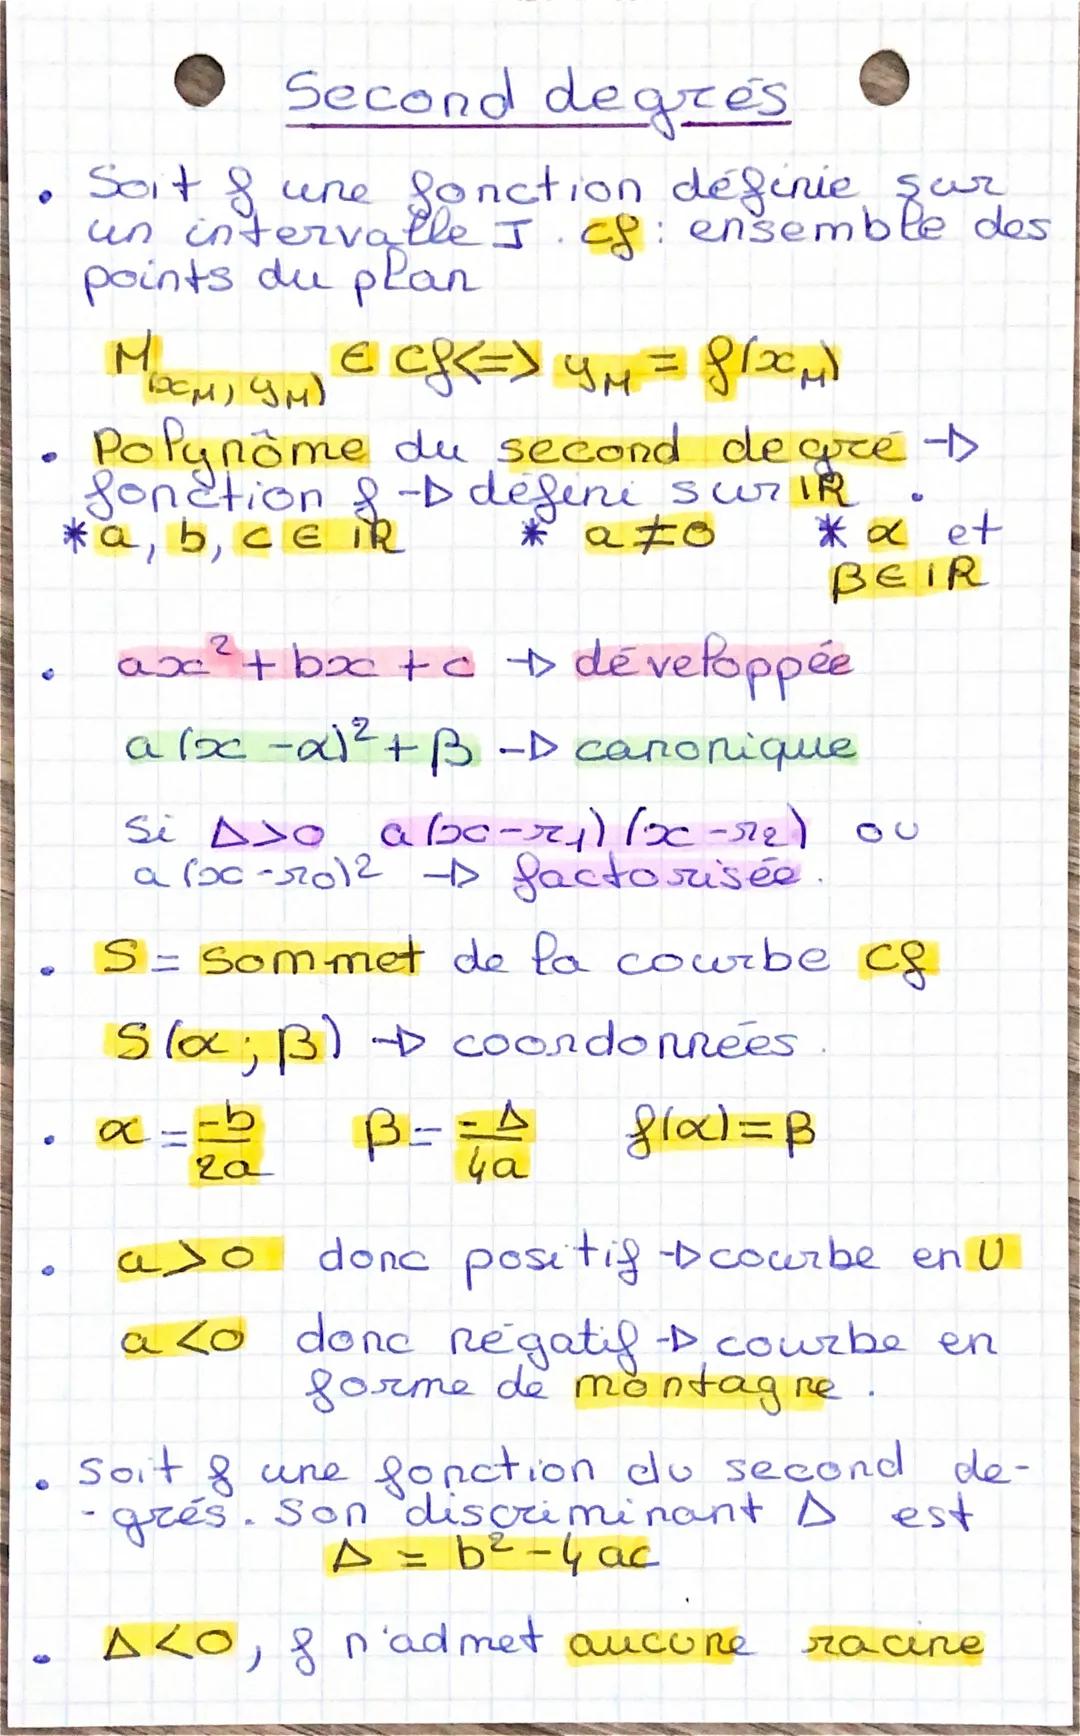 Second degrés
• Soit f une fonction définie sur
un intervalle I. Cf : ensemble des
points du plan
M(xM, yM) ∈ Cf <=> yM = f(xM)
• Polynôme du second degré →
fonction f → défini sur IR.
* a, b, c ∈ IR * a ≠ 0 * α et
β ∈ IR
• ax² + bx + c → développée
a(x - α)² + β → canonique
Si Δ>0 a(x-r1)(x-r2) ou
a(x-r0)2 → factorisée.
• S = Sommet de la courbe Cf
S(α; β) → coordonnées.
• α = -b/2a β = -Δ/4a f(α) = β
• a>0 donc positif → courbe en U
a<0 donc négatif → courbe en
forme de montagne.
• Soit f une fonction du second de-
-grés. Son discriminant Δ est
Δ = b² - 4ac
• Δ<0, f n'admet aucune racine